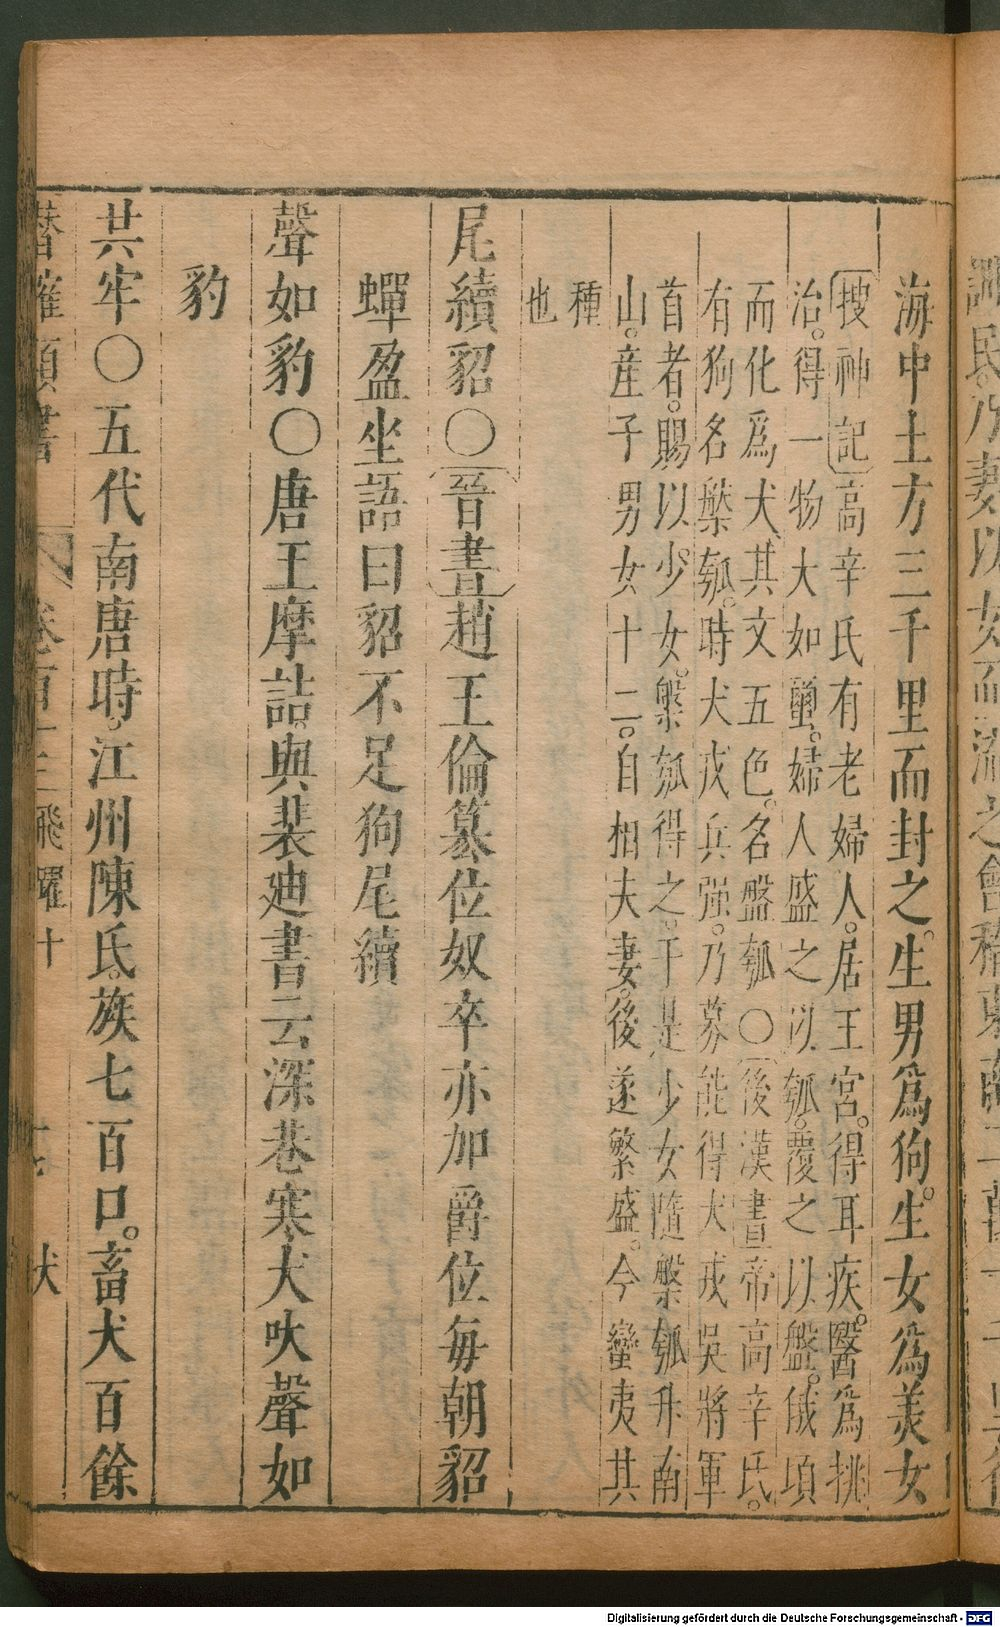 海中土方三千里而封之。生男爲狗。生女爲美女
搜神記高辛氏有老婦人。居王宮。得耳疾。醫爲挑
治。得一物大如蠒。婦人盛之以瓠。覆之以盤。俄頃
而化爲犬其文五色。名盤瓠〇後漢書帝高辛氏。
有狗名槃瓠。時犬戎兵强。乃募能得犬戎吳將軍
首者。賜以少女。槃瓠得之。于是少女隨槃瓠升南
山。産子男女十二。自相夫妻。後遂繁盛。今蠻夷其
種
也
尾續貂〇晉書趙王倫篡位奴卒亦加爵位每朝貂
蟬盈坐語曰貂不足狗尾續
聲如豹〇唐王摩詰。與裴廸書云深巷寒犬吠聲如
豹
共牢〇五代南唐時。江州陳氏。族七百口。畜犬百餘
卷百十三 飛躍十 犬
Digitalisierung gefördert durch die Deutsche Forschungsgemeinschaft - DFG